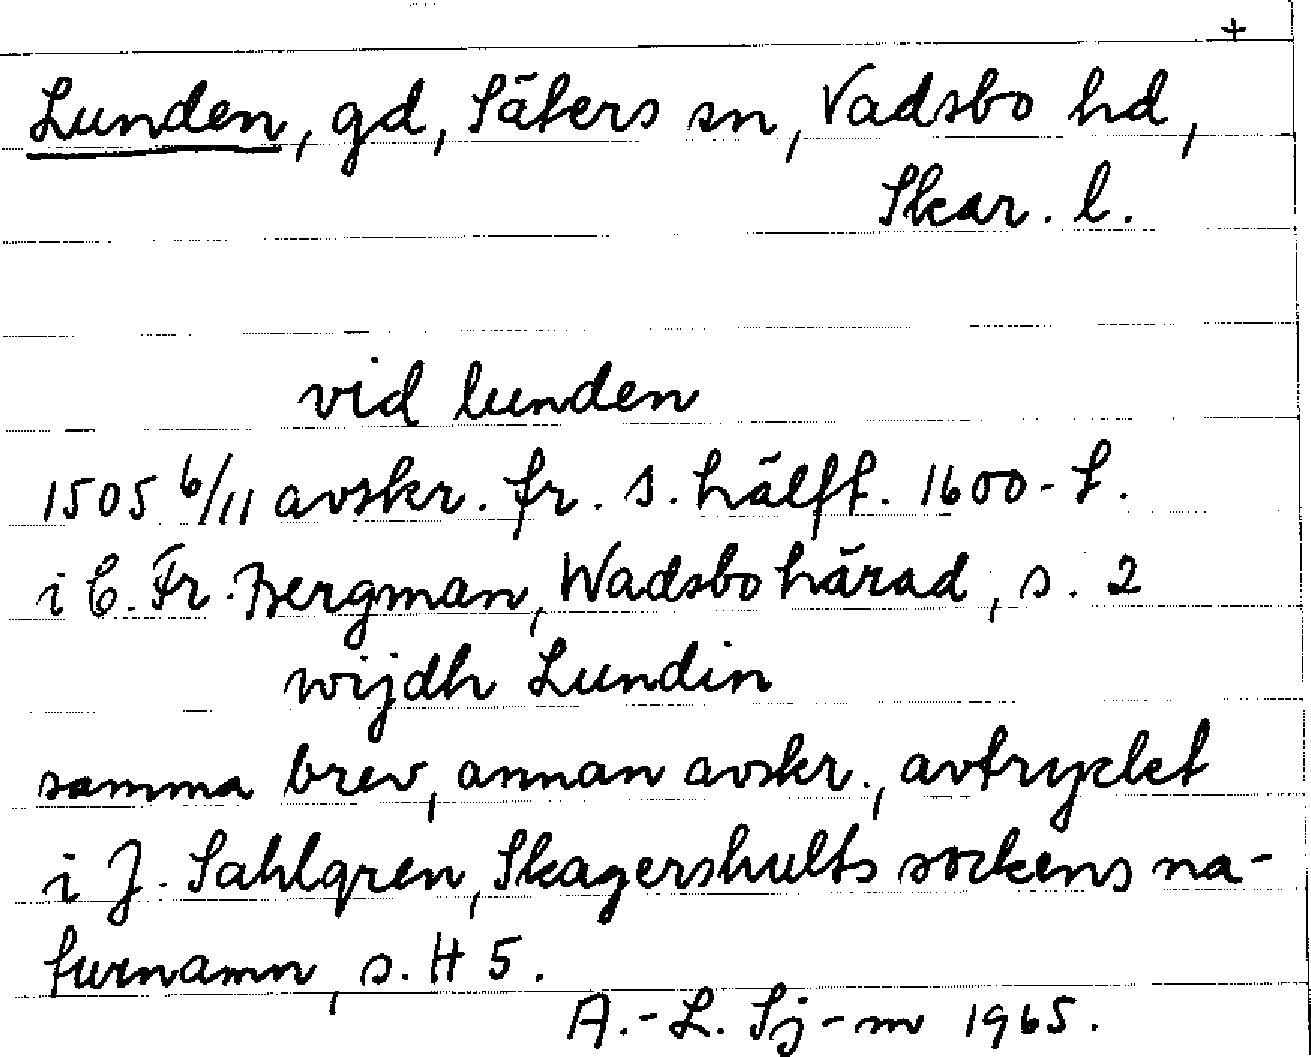 +
Lunden, gd, Säters sn, Vadsbo hd,
Skar. l.
vid lunden
1505 6/11 avskr. fr. s. hälft. 1600-t.
i C. Fr. Bergman, Wadsbo härad, s. 2
wijdh Lundin
samma brev, annan avskr., avtryckt
i J. Sahlgren, Skagershults sockens na-
turnamn, s. H 5.
A.-L. Sj-m 1965.